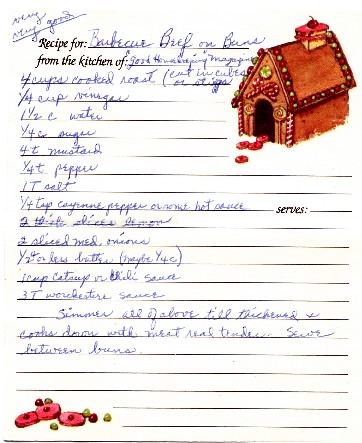 very
very good
Recipe for: Barbecue Beef on Buns
from the kitchen of: "Good Housekeeping" Magazine
4 cups cooked roast (cut in cubes
or strips
1/4 cup vinegar
1 1/2 c water
1/4 c sugar
4 t mustard
1/4 t pepper
1 T salt
1/4 tsp cayenne pepper or some hot sauce
serves:
2 thick slices lemon
2 sliced med. onions
1/2 c or less butter (maybe 1/4 c)
1 cup catsup or chili sauce
3 T worchestire sauce
Simmer all of above till thickened &
cooks down with meat real tender. Serve
between buns